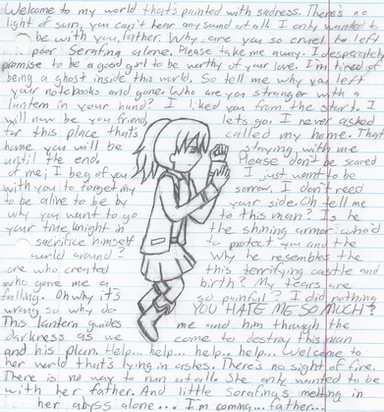 Welcome to my world that's painted with sadness. There's no
light of sun, you can't hear any sound at all. I only wanted to
be with you, father. Why are you so cruel to left
poor Serafing alone. Please take me away. I desperately
promise to be a good girl to be worthy of your love. I'm tired of
being a ghost inside this world. So tell me why you left
your notebooks and gone. Who are you stranger with a
lantern in your hand? I liked you from the start. I
will now be you friend, let's go. I never asked
for this place that's called my home. That
home you will be staying with me
until the end. Please don't be scared
of me; I beg of you I just want to be
with you to forget my sorrow. I don't need
to be alive to be by your side. Oh tell me
why you want to go to this man? Is he
your true knight in the shining armor who'd
sacrifice himself to protect you and the
world around? Why he resembles the
one who created this terrifying castle and
who gave me a birth? My tears are
falling. Oh why it's so painful? I did nothing
wrong so why do YOU HATE ME SO MUCH?
This lantern guides me and him through the
darkness as we come to destroy this man
and his plan. Help... help... help... help... Welcome to
her world that's lying in ashes. There's no sight of fire.
There is no way to run at all. She only wanted to be
with her father. And little Serafing's melting in
her abyss alone... I'm coming... father...